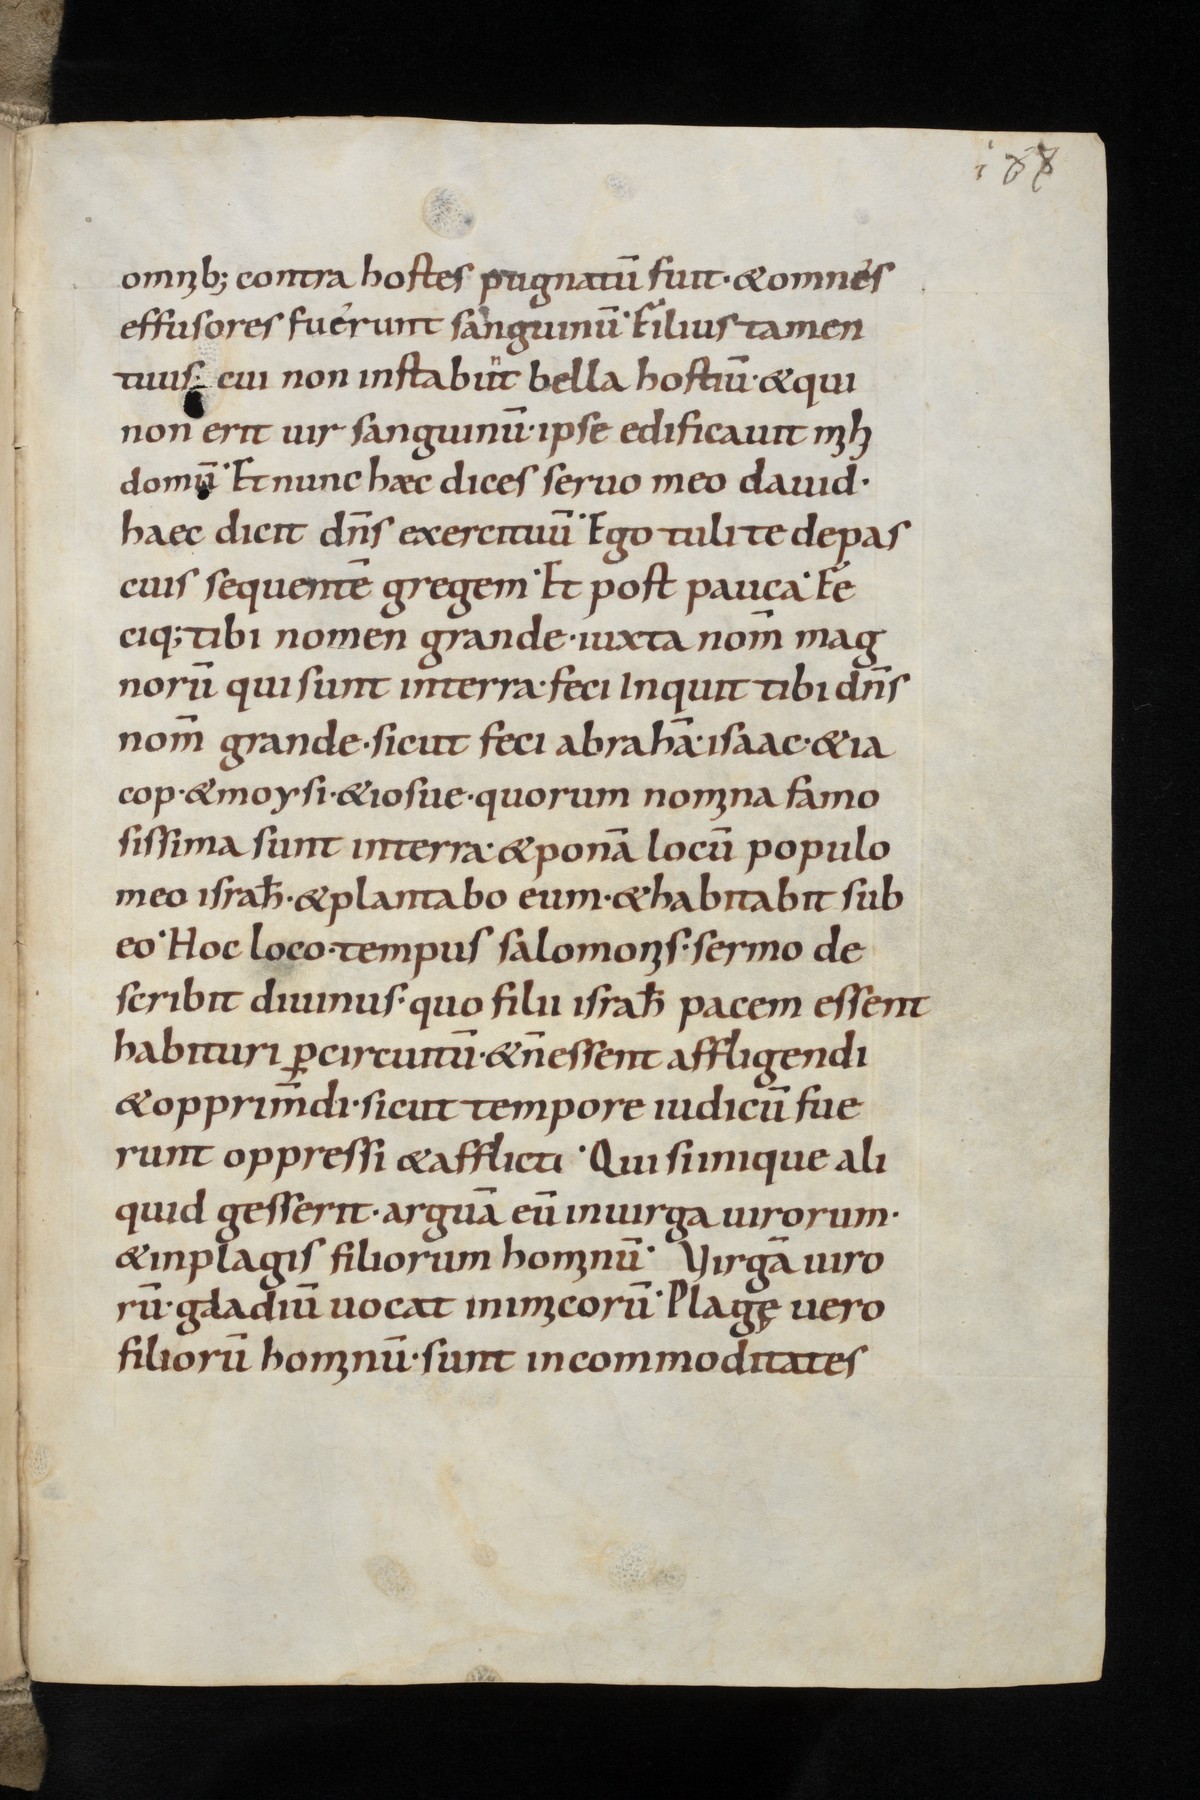 188
omnib; contra hostes pugnatū fuit· & omnes
effusores fuerunt sanguinū· Filius tamen
tuus· cui non instabūt bella hostiū· & qui
non erit uir sanguinū· ipse edificauit mihi
domū· Et nunc hæc dices seruo meo dauid·
haec dicit dn̄s exercituū· Ego tuli te depas
cuis sequentē gregem· Et post pauca· Fe
ciq; tibi nomen grande· iuxta nom̄ mag
norū qui sunt interra· feci Inquit tibi dn̄s
nom̄ grande· sicut feci abrahā· isaac· & ia
cop· & moysi· & iosue· quorum nomina famo
sissima sunt interra· & ponā locū populo
meo israħ· & plantabo eum· & habitabit sub
eo· Hoc loco· tempus salomonis· sermo de
scribit diuinus· quo filii israħ pacem essent
habituri ꝑcircuitū· & n̄ essent affligendi
& opprim̄di· sicut tempore iudicū fue
runt oppressi & afflicti· Qui si inique ali
quid gesserit· arguā eū in uirga uirorum·
& inplagis filiorum hominū· Virgā uiro
rū· gladiū uocat inimicorū· Plagę uero
filiorū hominū· sunt incommoditates